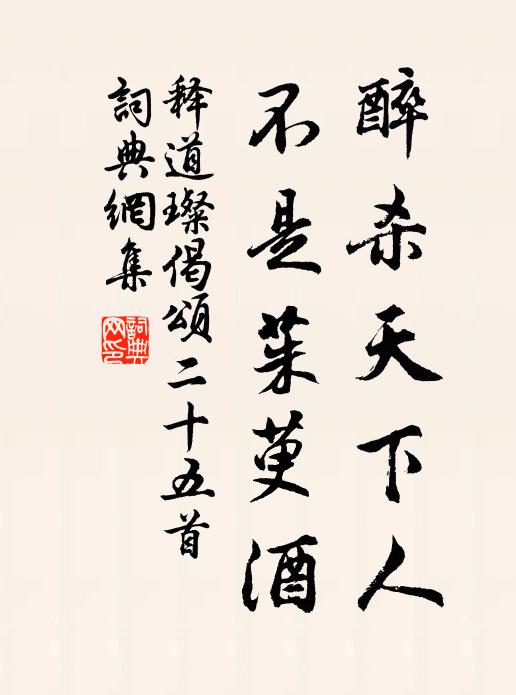 醉杀天下人
不是茱萸酒
释道璨偈頌二十五首
詞典網集
詞典网印